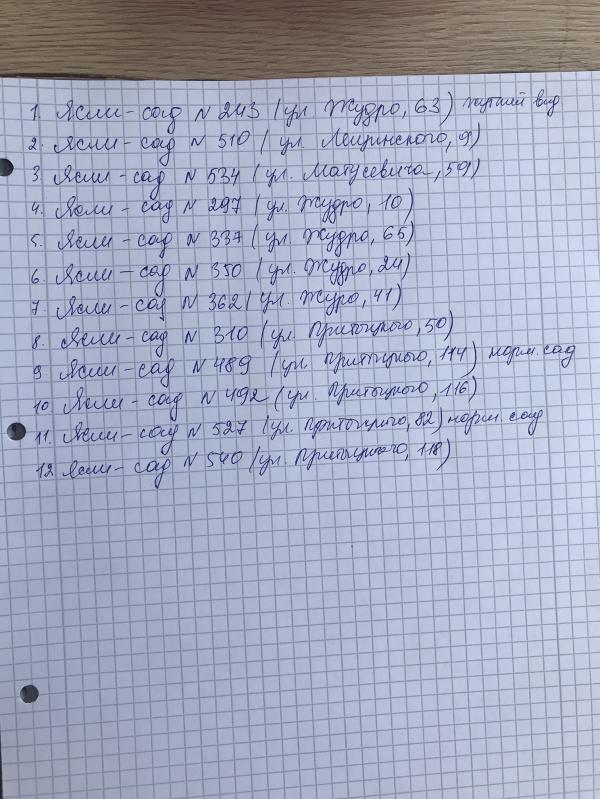 1. Ясли-сад N 243 (ул Жудро, 63) жуткий вид
2. Ясли-сад N 510 (ул. Лещинского, 9)
3 Ясли-сад N 534 (ул. Матусевича, 59)
4. Ясли-сад N 297 (ул. Жудро, 10)
5. Ясли-сад N 337 (ул. Жудро, 65)
6 Ясли-сад N 350 (ул. Жудро, 24)
7. Ясли-сад N 362 (ул. Журо, 41)
8. Ясли-сад N 310 (ул. Притыцкого, 50)
9 Ясли-сад N 489 (ул. Притыцкого, 114) норм. сад
10. Ясли-сад N 492 (ул. Притыцкого, 116)
11. Ясли-сад N 527 (ул. Притыцкого, 82) норм. сад
12 Ясли-сад N 540 (ул. Притыцкого, 118)